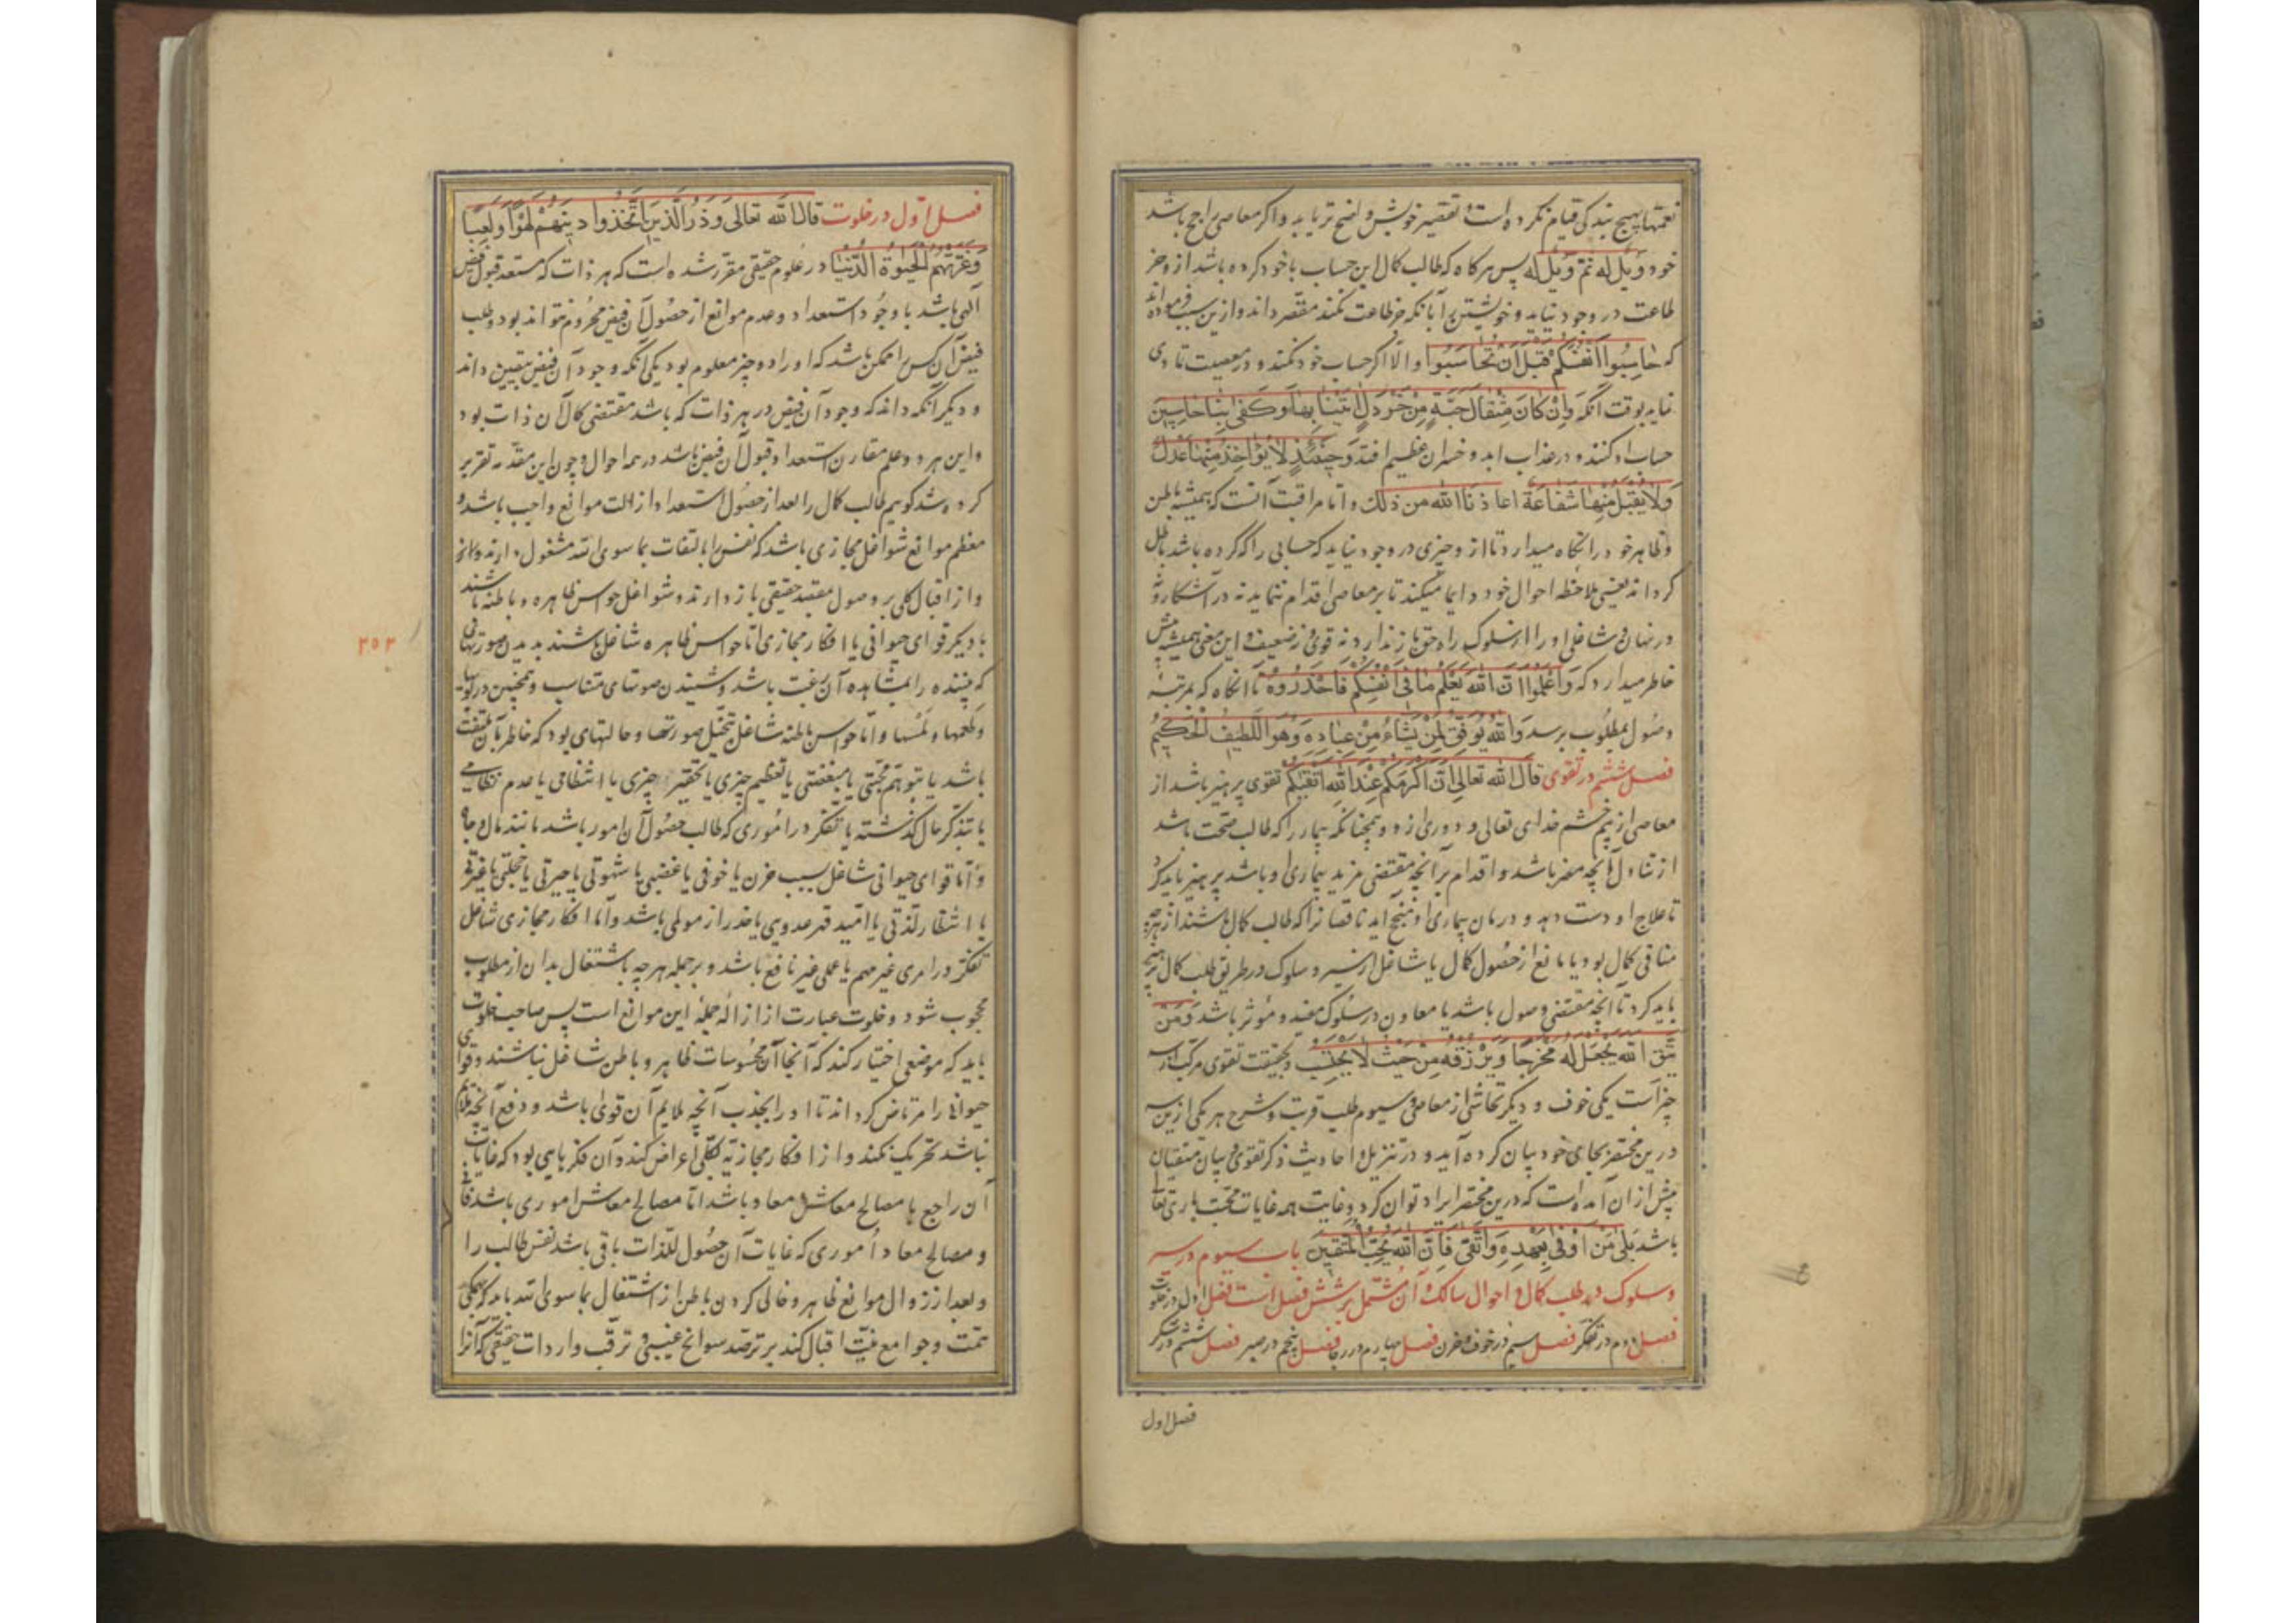 نعمتها بهیچ بندکی قیام نکرده است تقصیر خویش واضح تر یابد و اکر معاصی راجح باشد
خود وَیْلٌ لَه ثُمَّ وَیْلٌ لَه پس هرکاه که طالب کمال این حساب با خود کرده باشد از وجز
طاعت در وجود نیاید و خویشتن را با آنکه جز طاعت نکند مقصر داند و ازین سبب فرموده اند
که حاسِبُوا اَنفُسَکُمْ قَبْلَ اَنْ تُحَاسَبُوا و الّا اکر حساب خود نکند و در معصیت تمادی
نماید بوقت آنکه وَاِنْ کَانَ مِثْقَالَ حَبَّةٍ مِنْ خَرْدَلٍ اَتَیْنَا بِهَا وَکَفَی بِنَا حَاسِبِینَ
حساب او کنند و در عذاب ابد و خسران عظیم افتد وَحِینَئِذٍ لَا یُؤْاخَذُ مِنْهَا عَدْلٌ
وَلَا یُقْبَلُ مِنْهَا شَفَاعَةٌ اعاذنا الله من ذلک و اما مراقبت آنست که همیشه باطن
و ظاهر خود را نکاه میدارد تا از و چیزی در وجود نیاید که حسابی را که کرده باشد باطل
کرداند یعنی ملاحظه احوال خود دایما میکند تا بر معاصی اقدام ننماید نه در آشکارا و نه
در نهان و شاغلی او را از سلوک راه حق باز ندارد نه قوی و نه ضعیف و این معنی همیشه پیش
خاطر میدارد که وَاعْلَمُوا اَنَّ اللهَ یَعْلَمُ مَا فِی اَنْفُسِکُمْ فَاحْذَرُوهُ تا آنکاه که بمرتبه
وصول بمطلوب برسد وَاللهُ یُوَفِّقُ لِمَنْ یَشَاءُ مِنْ عِبَادِهِ وَهُوَ اللَّطِیفُ الْحَکِیمُ
فصل ششم در تقوی قال الله تعالی اِنَّ اَکْرَمَکُمْ عِنْدَ اللهِ اَتْقَیکُمْ تقوی پرهیز باشد از
معاصی از بیم خشم خدای تعالی و دوری از و و همچنانکه بیمار را که طالب صحت باشد
از تناول آنچه مضر باشد و اقدام بر آنچه مقتضی مزید بیماری او باشد پرهیز باید کرد
تا علاج او دست دهد و درمان بیماری او منجح آید ناقصان را که طالب کمال باشند از هرچه
منافی کمال بود یا مانع از حصول کمال یا شاغل از سیر و سلوک در طریق طلب کمال پرهیز
باید کرد تا آنچه مقتضی وصول باشد یا معاون در سلوک مفید و مؤثر باشد وَمَنْ
یَتَّقِ اللهَ یَجْعَلْ لَهُ مَخْرَجًا وَیَرْزُقْهُ مِنْ حَیْثُ لَا یَحْتَسِبُ و بحقیقت تقوی مرکب از سه
چیز است یکی خوف و دیگر تحاشی از معاصی و سیوم طلب قربت و شرح هر یکی ازین سه
درین مختصر بجای خود بیان کرده آید و در تنزیل و احادیث ذکر تقوی و بیان متقیان
بیش از ان آمده است که درین مختصر ایراد توان کرد و غایت همه غایات محبت باری تعالی
باشد بَلَی مَنْ اَوْفَی بِعَهْدِهِ وَاتَّقَی فَاِنَّ اللهَ یُحِبُّ الْمُتَّقِینَ باب سیوم در سیر
و سلوک در طلب کمال و احوال سالک و آن مشتمل بر شش فصل است فصل اول در خلوت
فصل دوم در تفکر فصل سیم در خوف و حزن فصل چهارم در رجا فصل پنجم در صبر فصل ششم در شکر
فصل اول
فصل اول در خلوت قال الله تعالی وَذَرِ الَّذِینَ اتَّخَذُوا دِینَهُمْ لَهْوًا وَلَعِبًا
وَغَرَّتْهُمُ الْحَیوةُ الدُّنْیَا در علوم حقیقی مقرر شده است که هر ذات که مستعد قبول فیض
الهی باشد با وجود استعداد و عدم موانع از حصول آن فیض محروم نتواند بود و طلب
فیض آن کس را ممکن باشد که او را دو چیز معلوم بود یکی آنکه وجود آن فیض بیقین داند
و دیگر آنکه داند که وجود آن فیض در هر ذات که باشد مقتضی کمال آن ذات بود
و این هر دو علم مقارن استعداد قبول آن فیض باشد در همه احوال و چون این مقدمه تقریر
کرده شد کوییم طالب کمال را بعد از حصول استعداد ازالت موانع واجب باشد و
معظم موانع شواغل مجازی باشد که نفس را بالتفات بما سوی الله مشغول دارند و
و از اقبال کلی بر وصول مقصد حقیقی باز دارند و شواغل حواس ظاهره و باطنه باشند
یا دیگر قوای حیوانی یا افکار مجازی اما حواس ظاهره شاغل باشند بدیدن صورتهایی
که بیننده را بمشاهده آن رغبت باشد و شنیدن صوتهای متناسب و همچنین در بویها
و طعمها و لمسها و اما حواس باطنه شاغل بتخیل صورتها و حالتهای بود که خاطر بآن ملتفت
باشد یا بتوهم محبتی یا مبغضتی یا تعظیم چیزی یا تحقیر چیزی یا انتظامی یا عدم نظامی
یا بتذکر حال کذشته یا تفکر در اموری که طالب حصول آن امور باشد مانند مال و جاه
و اما قوای حیوانی شاغل بسبب حزن یا خوفی یا غضبی یا شهوتی یا حیرتی یا خجلتی یا غیرتی
یا انتظار لذتی یا امید قهر عدوی یا حذر از مولمی باشد و اما افکار مجازی شاغل
تفکر در امری غیر مهم یا علمی غیر نافع باشد و بر جمله هر چه باشتغال بدان از مطلوب
محجوب شود و خلوت عبارت از ازاله جمله این موانع است پس صاحب خلوت
باید که موضعی اختیار کند که آنجا از محسوسات ظاهر و باطن شاغل نباشند و قوای
حیوانی را مرتاض کرداند تا او را بجذب آنچه ملایم آن قوی باشد و دفع آنچه ملایم
نباشد تحریک نکند و از افکار مجازیه بکلی اعراض کند و آن فکرهایی بود که غایات
آن راجع با مصالح معاش و معاد باشد اما مصالح معاش اموری باشد فانی
و مصالح معاد اموری که غایات آن حصول لذات باقی باشد نفس طالب را
و بعد از زوال موانع ظاهر و خالی کردن باطن از اشتغال بما سوی الله باید که بهمکی
همت و جوامع نیت اقبال کند بر ترصد سوانح غیبی و ترقب واردات حقیقی که آنرا
۲۵۲